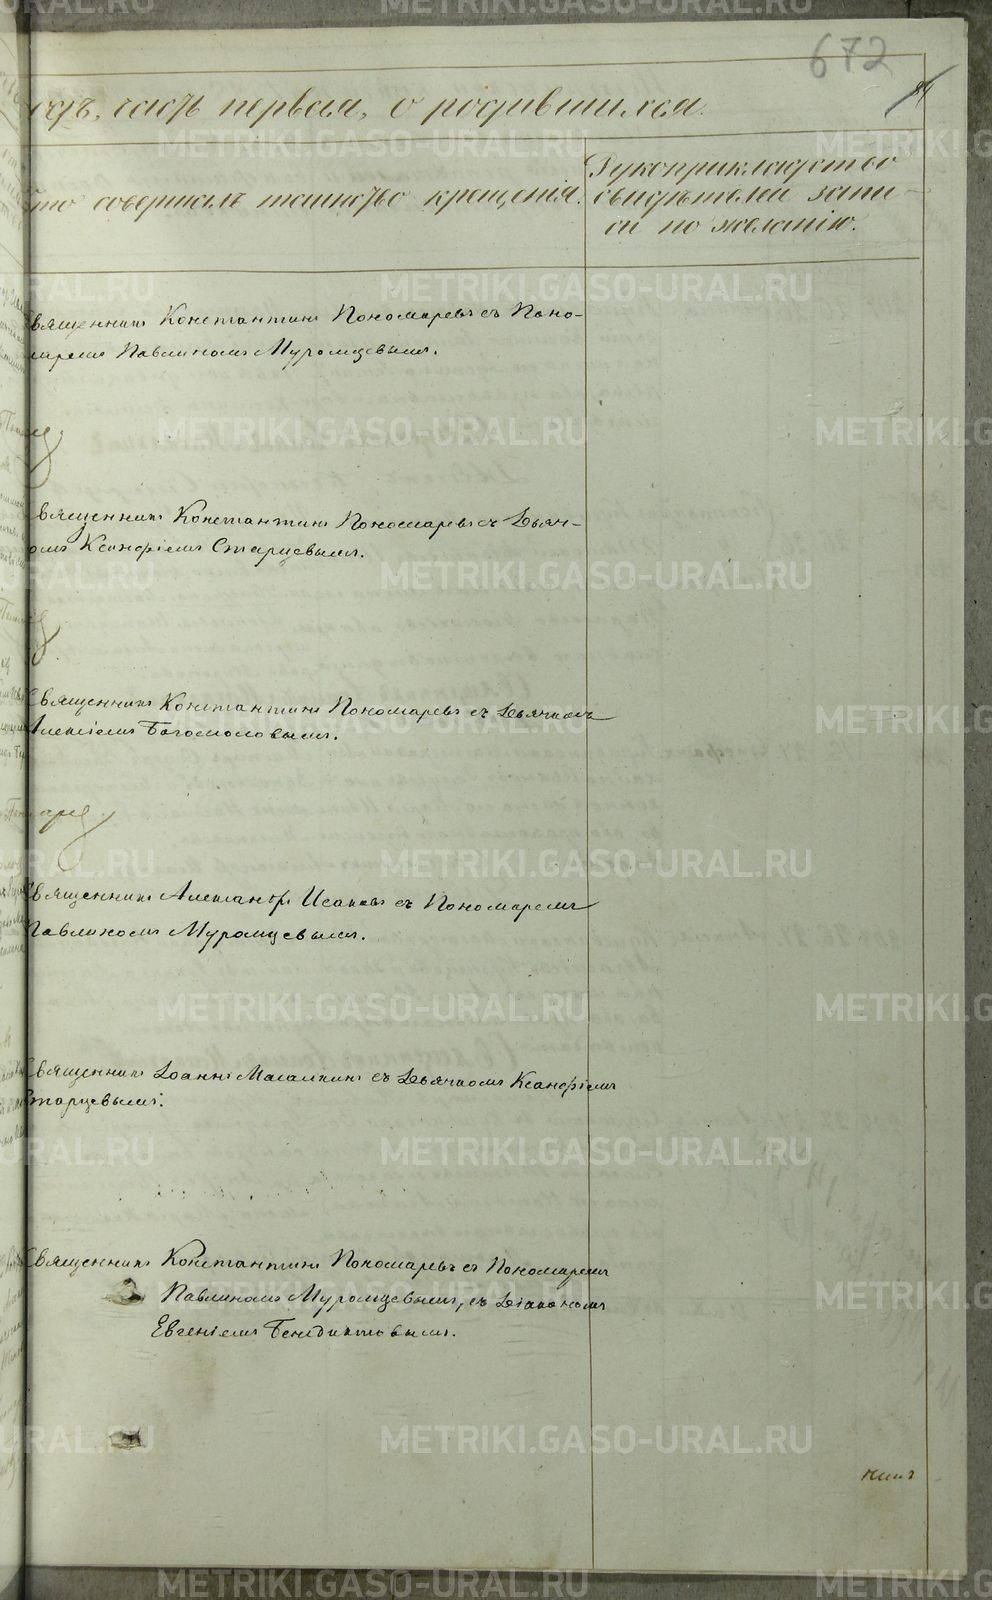 672
годъ, часть первая, о родившихся.
Кто совершалъ таинство крещенія.
Рукоприкладство
свидѣтелей запи-
си по желанію.
Священникъ Константинъ Пономаревъ съ Поно-
маремъ Павлиномъ Муромцевымъ.
Священникъ Константинъ Пономаревъ съ Дьяч-
комъ Ксанфіемъ Старцевымъ.
Священникъ Константинъ Пономаревъ съ Дьячкомъ
Алексіемъ Богомоловымъ.
Священникъ Александръ Исаковъ съ Пономаремъ
Павлиномъ Муромцевымъ.
Священникъ Іоаннъ Масалкинъ съ Дьячкомъ Ксанфіемъ
Старцевымъ.
Священникъ Константинъ Пономаревъ съ Пономаремъ
Павлиномъ Муромцевымъ, съ Діакономъ
Евгеніемъ Бенедиктовымъ.
METRIKI.GASO-URAL.RU